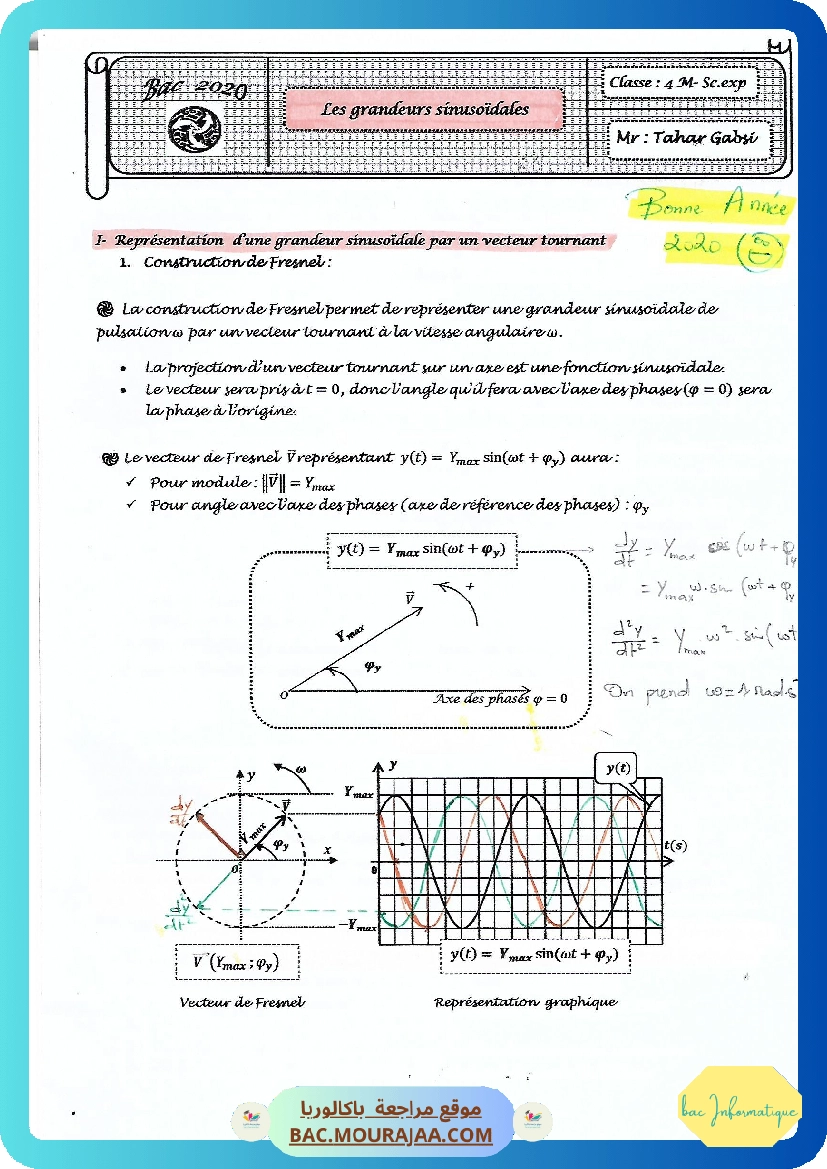 Bac 2020
Les grandeurs sinusoïdales
Classe : 4 M- Sc.exp
Mr : Tahar Gabsi
Bonne Année
2020
I- Représentation d'une grandeur sinusoïdale par un vecteur tournant
1. Construction de Fresnel :
La construction de Fresnel permet de représenter une grandeur sinusoïdale de
pulsation ω par un vecteur tournant à la vitesse angulaire ω.
• La projection d'un vecteur tournant sur un axe est une fonction sinusoïdale.
• Le vecteur sera pris à t = 0, donc l'angle qu'il fera avec l'axe des phases (φ = 0) sera
la phase à l'origine.
Le vecteur de Fresnel V⃗ représentant y(t) = Ymax sin(ωt + φy) aura :
✓ Pour module : ‖V⃗‖ = Ymax
✓ Pour angle avec l'axe des phases (axe de référence des phases) : φy
y(t) = Ymax sin(ωt + φy)
dy/dt = Ymax cos (ωt + φy
= Ymax ω. sin (ωt + φy
d²y/dt² = Ymax ω². sin (ωt
On prend ω = 1 rad.s
V⃗
+
Ymax
φy
O
Axe des phases φ = 0
y
ω
V⃗
dy/dt
Ymax
φy
x
O
d²y/dt²
y
Ymax
0
−Ymax
y(t)
t(s)
V⃗ (Ymax ; φy)
y(t) = Ymax sin(ωt + φy)
Vecteur de Fresnel
Représentation graphique
موقع مراجعة باكالوريا
BAC.MOURAJAA.COM
bac Informatique